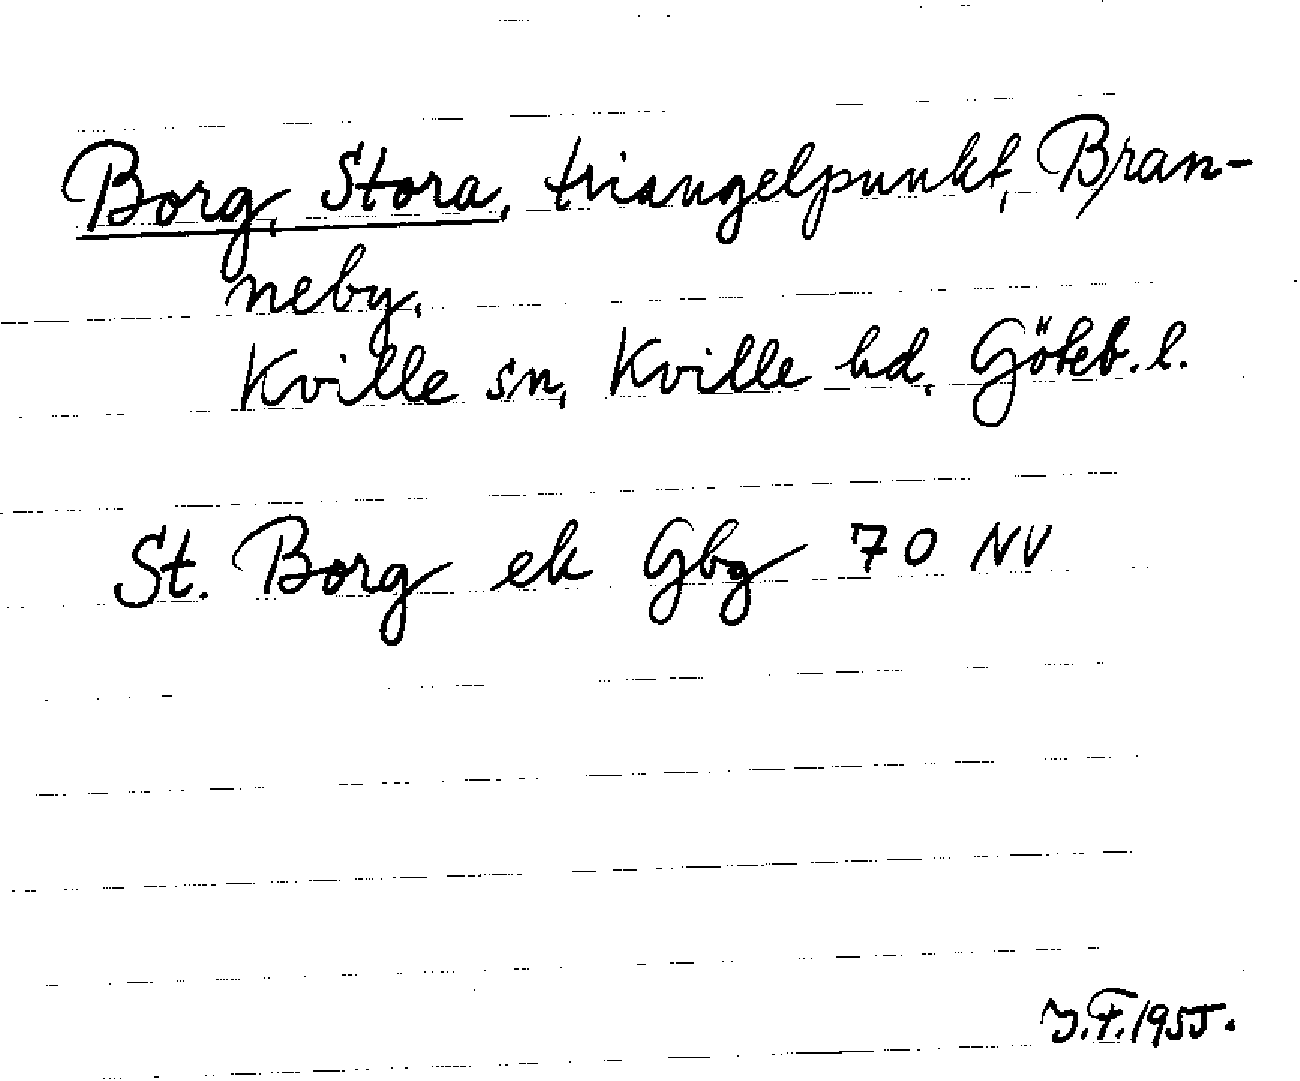 Borg, Stora, triangelpunkt, Bran-
neby.
Kville sn, Kville hd. Göteb. l.
St. Borg ek Gbg 70 NV
J.F. 1955.